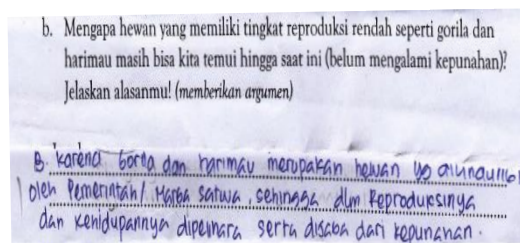 b. Mengapa hewan yang memiliki tingkat reproduksi rendah seperti gorila dan
harimau masih bisa kita temui hingga saat ini (belum mengalami kepunahan)?
Jelaskan alasanmu! (memberikan argumen)
B. karena gorila dan harimau merupakan hewan yg dilindungi
oleh Pemerintah / Marga satwa, sehingga dlm Reproduksinya
dan kehidupannya dipelihara serta dijaga dari kepunahan.